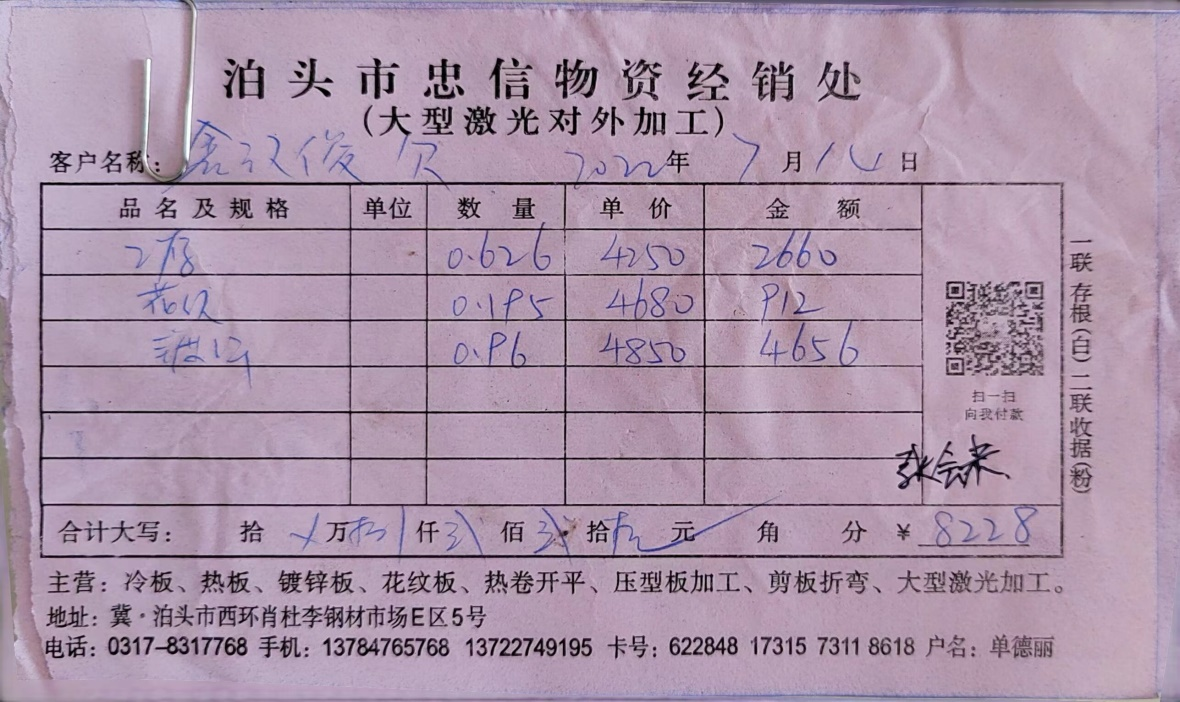 泊头市忠信物资经销处
(大型激光对外加工)
客户名称: 鑫汉俊 欠 2022年 7月14日
品名及规格 单位 数量 单价 金额
2厚 0.626 4250 2660
花纹 0.195 4680 912
镀锌 0.96 4850 4656
扫一扫
向我付款
合计大写: 拾 万 捌仟 贰佰 贰拾 元 角 分 ¥ 8228
一联存根(白)二联收据(粉)
主营:冷板、热板、镀锌板、花纹板、热卷开平、压型板加工、剪板折弯、大型激光加工。
地址:冀·泊头市西环肖杜李钢材市场E区5号
电话:0317-8317768 手机:13784765768 13722749195 卡号:622848 17315 7311 8618 户名:单德丽